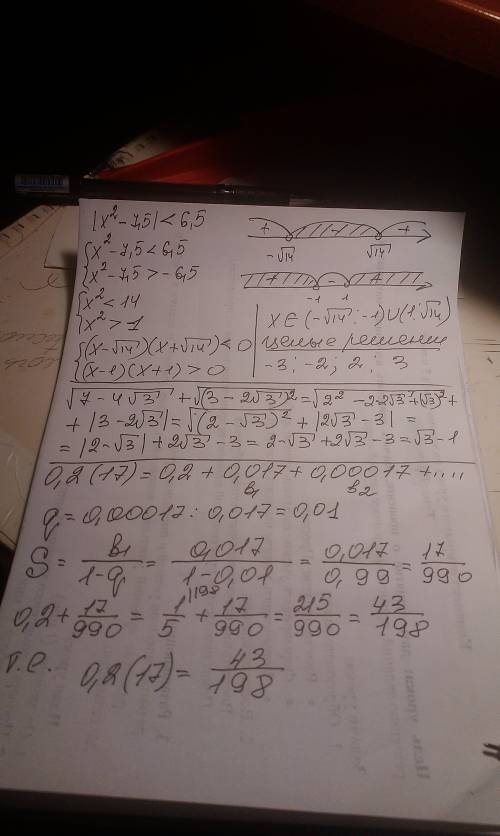 |x² - 7,5| < 6,5
{x² - 7,5 < 6,5
{x² - 7,5 > -6,5
{x² < 14
{x² > 1
{(x-√14)(x+√14) < 0
{(x-1)(x+1) > 0
+ - +
-√14 √14
+ - +
-1 1
x ∈ (-√14; -1) ∪ (1; √14)
целые решения
-3; -2; 2; 3
√(7 - 4√3) + √(3 - 2√3)² = √(2² - 2·2√3 + (√3)²) +
+ |3 - 2√3| = √(2 - √3)² + |2√3 - 3| =
= |2-√3| + 2√3 - 3 = 2-√3 + 2√3 - 3 = √3 - 1
0,2(17) = 0,2 + 0,017 + 0,00017 + ....
b₁ b₂
q = 0,00017 : 0,017 = 0,01
S = b₁/(1-q) = 0,017/(1-0,01) = 0,017/0,99 = 17/990
0,2 + 17/990 = 1/5 + 17/990 = 215/990 = 43/198
т.е. 0,2(17) = 43/198